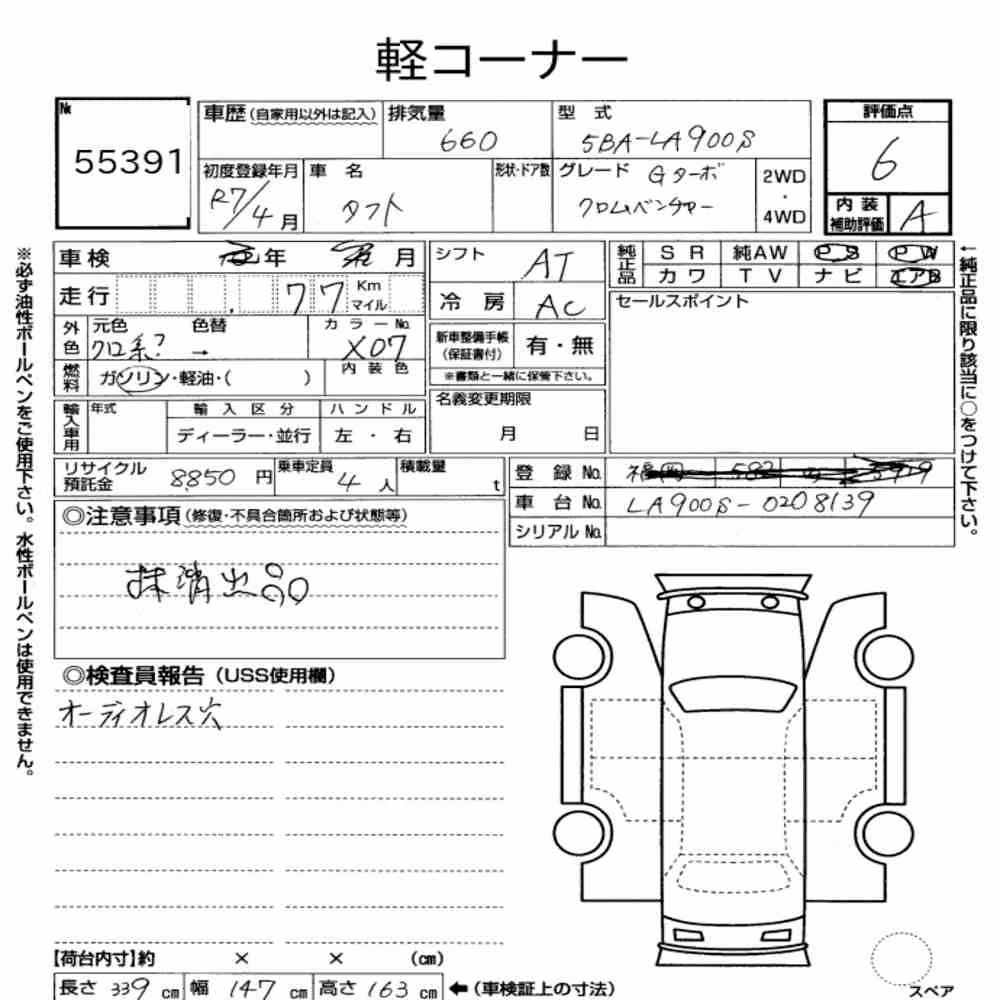 軽コーナー
№
55391
車歴(自家用以外は記入)
排気量
660
型式
5BA-LA900S
評価点
6
初度登録年月
R7/4月
車名
タフト
形状・ドア数
グレード Gターボ
クロムベンチャー
2WD
・
4WD
内装
補助評価
A
車検
年
月
シフト
AT
純正品
SR
純AW
PS
PW
カワ
TV
ナビ
エアB
走行
77
Km
マイル
冷房
AC
セールスポイント
外色
元色
クロ系?
色替
→
カラーNo.
X07
新車整備手帳
(保証書付)
有・無
※書類と一緒に保管下さい。
燃料
ガソリン・軽油・( )
内装色
名義変更期限
月 日
輸入車用
年式
輸入区分
ディーラー・並行
ハンドル
左・右
リサイクル
預託金
8850円
乗車定員
4人
積載量
t
登録No.
福岡 582
車台No.
LA900S-0208139
シリアルNo.
◎注意事項(修復・不具合箇所および状態等)
抹消出品
◎検査員報告(USS使用欄)
オーディオレス穴
【荷台内寸】約 × × (cm)
長さ 339 cm
幅 147 cm
高さ 163 cm
←(車検証上の寸法)
スペア
※必ず油性ボールペンをご使用下さい。水性ボールペンは使用できません。
←純正品に限り該当に○をつけて下さい。